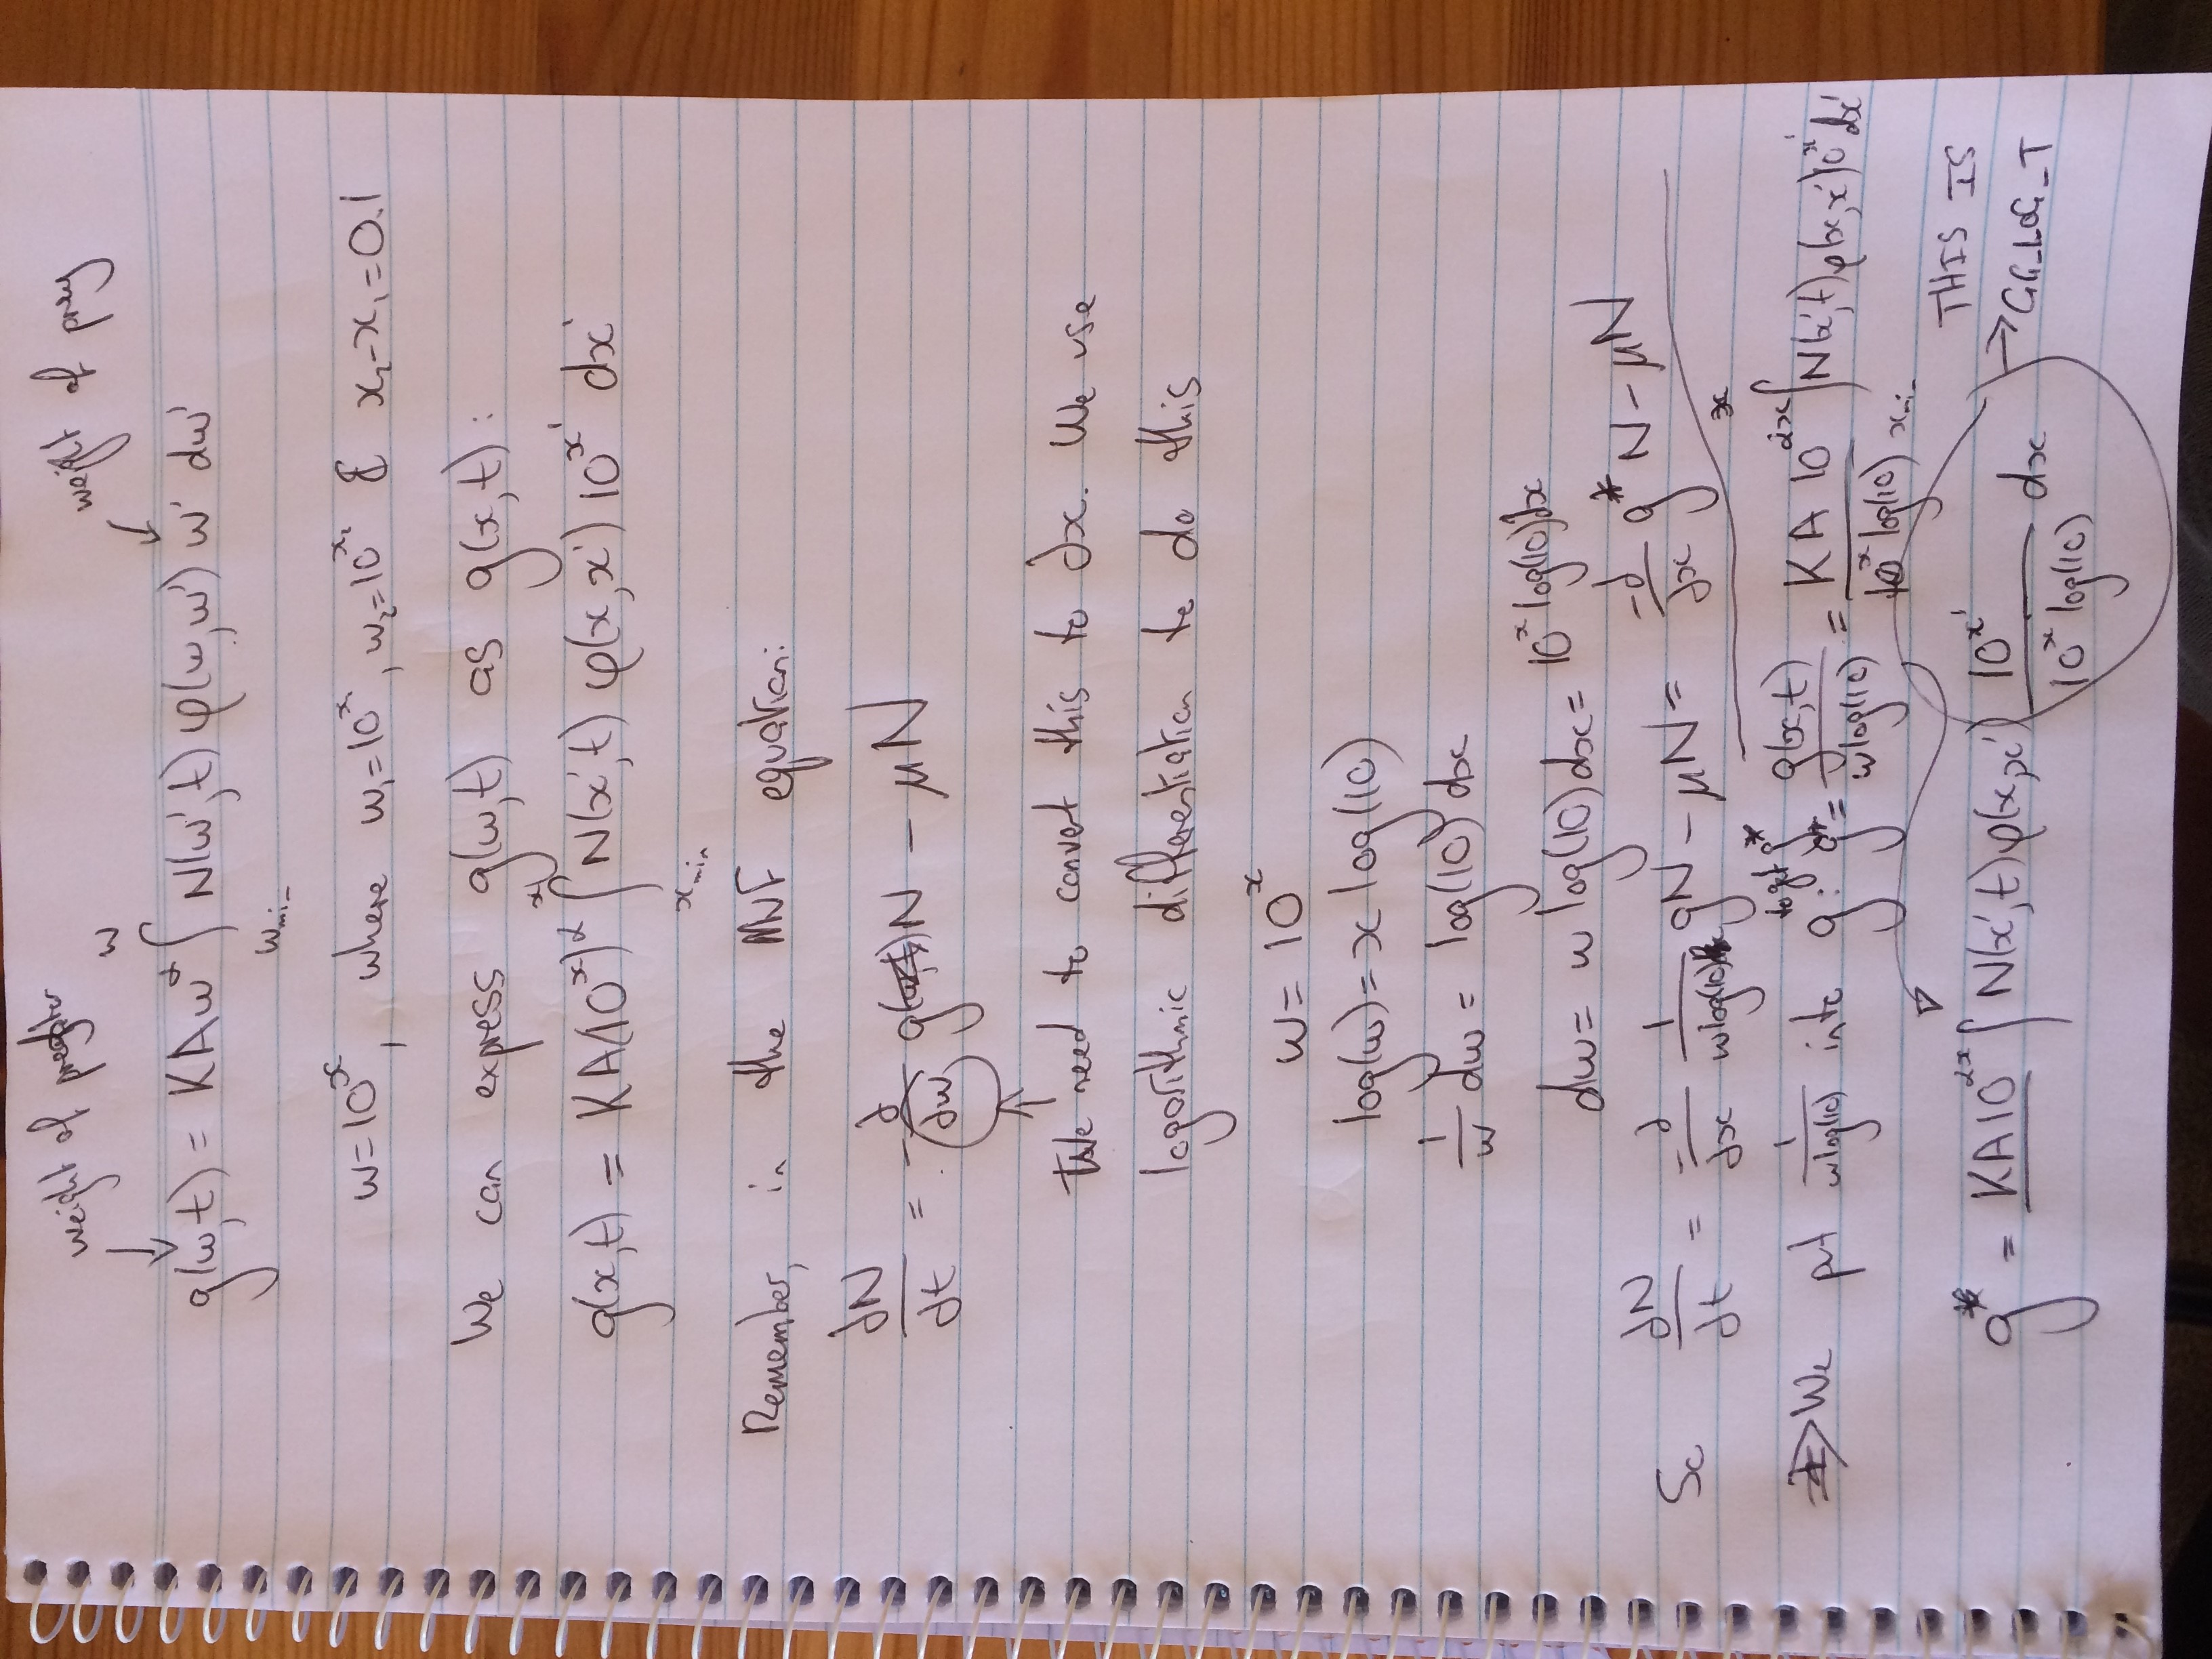 weight of predator
weight of prey
g(w,t) = KAw^α ∫_{w_min}^{w} N(w',t) φ(w,w') w' dw'
w=10^x, where w₁=10^{x₁}, w₂=10^{x₂} & x₂-x₁=0.1
We can express g(w,t) as g(x,t):
g(x,t) = KA(10^x)^α ∫_{x_min}^{x} N(x',t) φ(x,x') 10^{x'} dx'
Remember, in the MvF equation:
∂N/∂t = -∂/∂w gN - μN
We need to convert this to ∂x. We use
logarithmic differentiation to do this
w = 10^x
log(w) = x log(10)
1/w dw = log(10) dx
dw = w log(10) dx = 10^x log(10) dx
So ∂N/∂t = -∂/∂x 1/(w log(10)) gN - μN = -∂/∂x g* N - μN
⇒ We put 1/(w log(10)) into g: to get g* g* = g(x,t)/(w log(10)) = KA 10^{αx}/(10^x log(10)) ∫_{x_min}^{x} N(x',t) φ(x,x') 10^{x'} dx'
g* = KA10^{αx} ∫ N(x',t) φ(x,x') 10^{x'}/(10^x log(10)) dx
THIS IS
GG_LOG_T